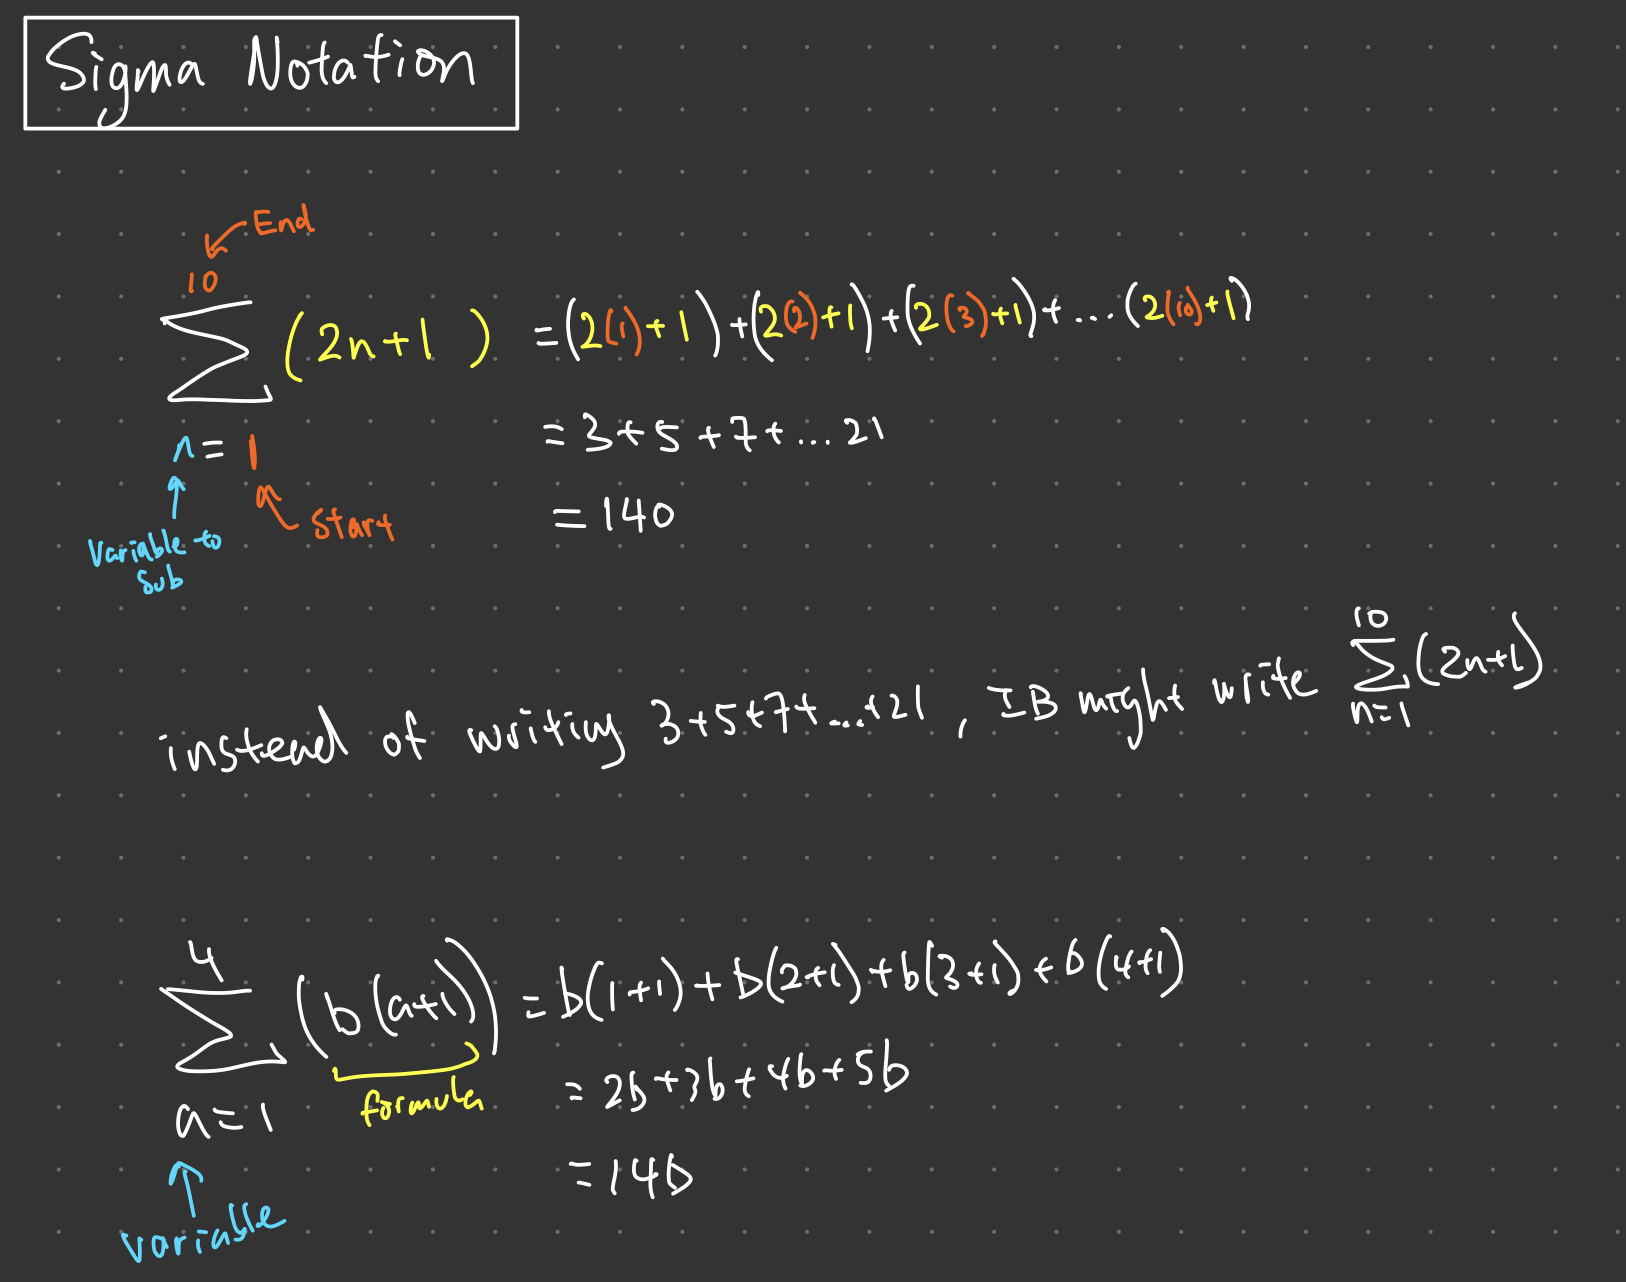 Sigma Notation
End
10
∑ (2n+1) = (2(1)+1)+(2(2)+1)+(2(3)+1)+...(2(10)+1)
n=1
= 3+5+7+...21
Start
= 140
Variable to
sub
instead of writing 3+5+7+...+21, IB might write ∑ (2n+1)
10
n=1
4
∑ (b(a+1)) = b(1+1)+b(2+1)+b(3+1)+b(4+1)
a=1
formula
= 2b+3b+4b+5b
= 14b
variable